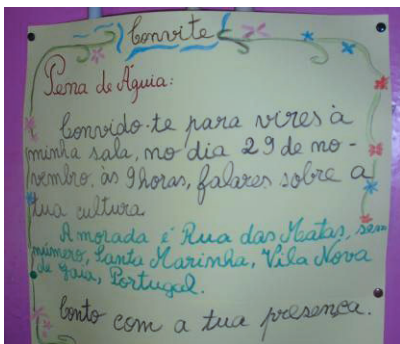 Convite
Pena de Águia:
Convido-te para vires à
minha sala, no dia 29 de no-
vembro, às 9 horas, falares sobre a
tua cultura.
A morada é Rua das Matas, sem
número, Santa Marinha, Vila Nova
de Gaia, Portugal.
Conto com a tua presença.